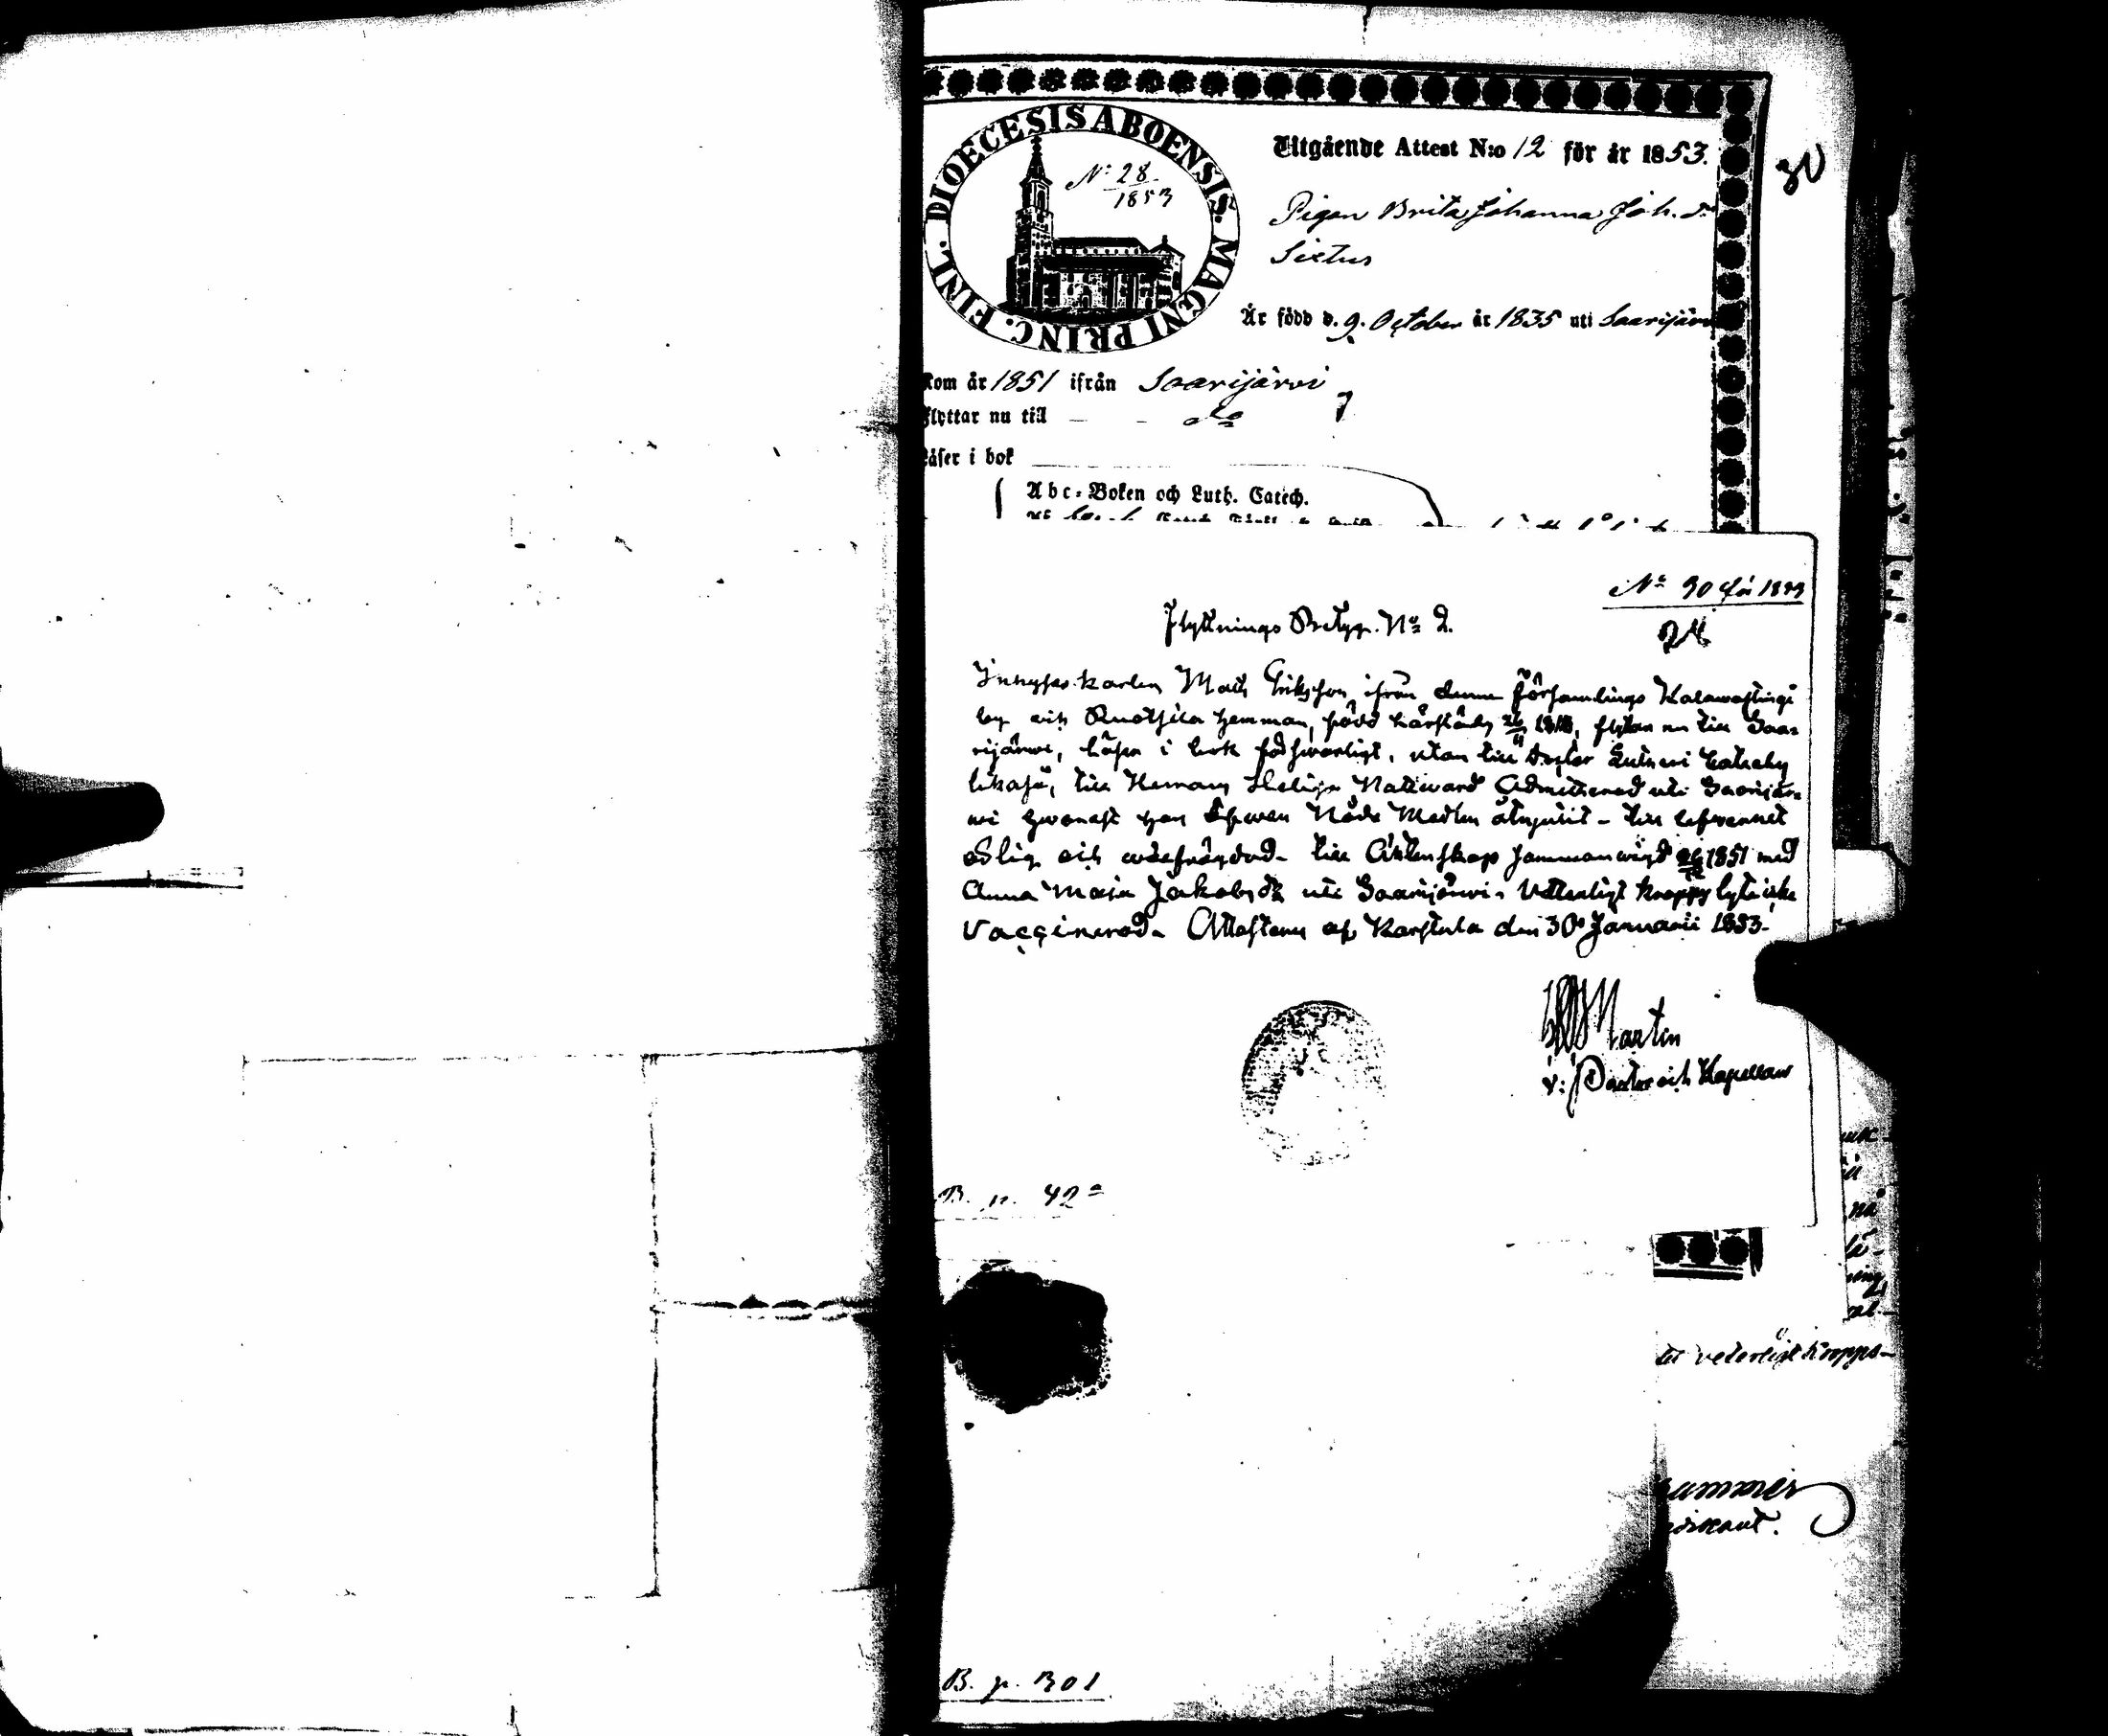 DIOECESIS ABOENSIS. MAGNI PRINC. FINL.
No 28
1853
Utgående Attest N:o 12 för år 1853.
30
Pigan Brita Johanna Joh. dr
Sixtus
Är född d. 9. October år 1835 uti Saarijärvi
Kom år 1851 ifrån Saarijärvi
Flyttar nu till - - do
Läser i bok
Abc-Boken och Luth. Catech.
No 30 för 1853
Flyttnings Betyg. No 2.
24
Inhyses karlen Matts Eriksson, ifrån denne Församlings Kalawastinge
by och hemman, född härstädes 1818, flyttar nu till Saa-
rijärwi, läser i bok förswarligt, utan till Doctor Lutheri Cateches
likaså, till Herrans Heliga Nattward Admitterad uti Saarijär-
wi hwarest han äfwen Nåde Medlen åtnjutit - till lefwernet
ärlig och wälfrägdad - till Äktenskap sammanwigd 1851 med
Anna Maja Jakobs dr uti Saarijärwi. Wetterligt kropps lyte icke
Vaccinerad. Attesterar af Karstula den 30 Januarii 1853.
Martin
v: Pastor och Kapellan
B. p. 42
tet veterligt kropps-
B. p. 301